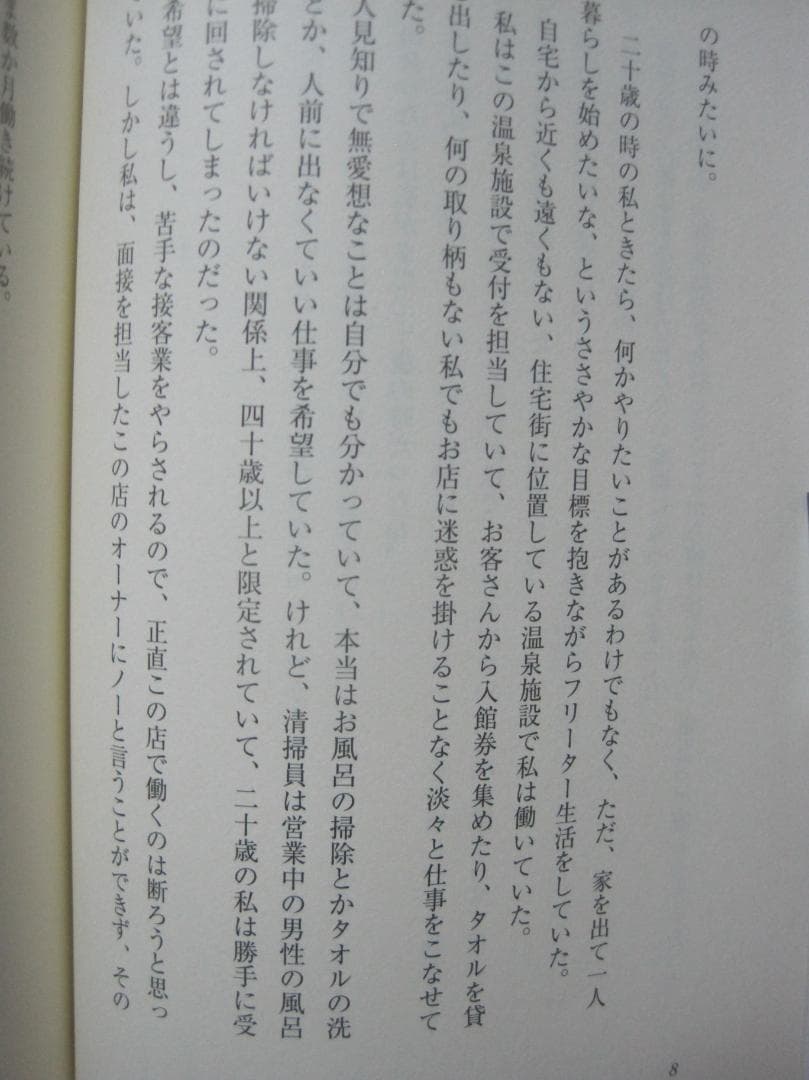 の時みたいに。
二十歳の時の私ときたら、何かやりたいことがあるわけでもなく、ただ、家を出て一人
暮らしを始めたいな、というささやかな目標を抱きながらフリーター生活をしていた。
自宅から近くも遠くもない、住宅街に位置している温泉施設で私は働いていた。
私はこの温泉施設で受付を担当していて、お客さんから入館券を集めたり、タオルを貸
し出したり、何の取り柄もない私でもお店に迷惑を掛けることなく淡々と仕事をこなせて
た。
人見知りで無愛想なことは自分でも分かっていて、本当はお風呂の掃除とかタオルの洗
とか、人前に出なくていい仕事を希望していた。けれど、清掃員は営業中の男性の風呂
掃除しなければいけない関係上、四十歳以上と限定されていて、二十歳の私は勝手に受
に回されてしまったのだった。
希望とは違うし、苦手な接客業をやらされるので、正直この店で働くのは断ろうと思っ
いた。しかし私は、面接を担当したこの店のオーナーにノーと言うことができず、その
数か月働き続けている。
8